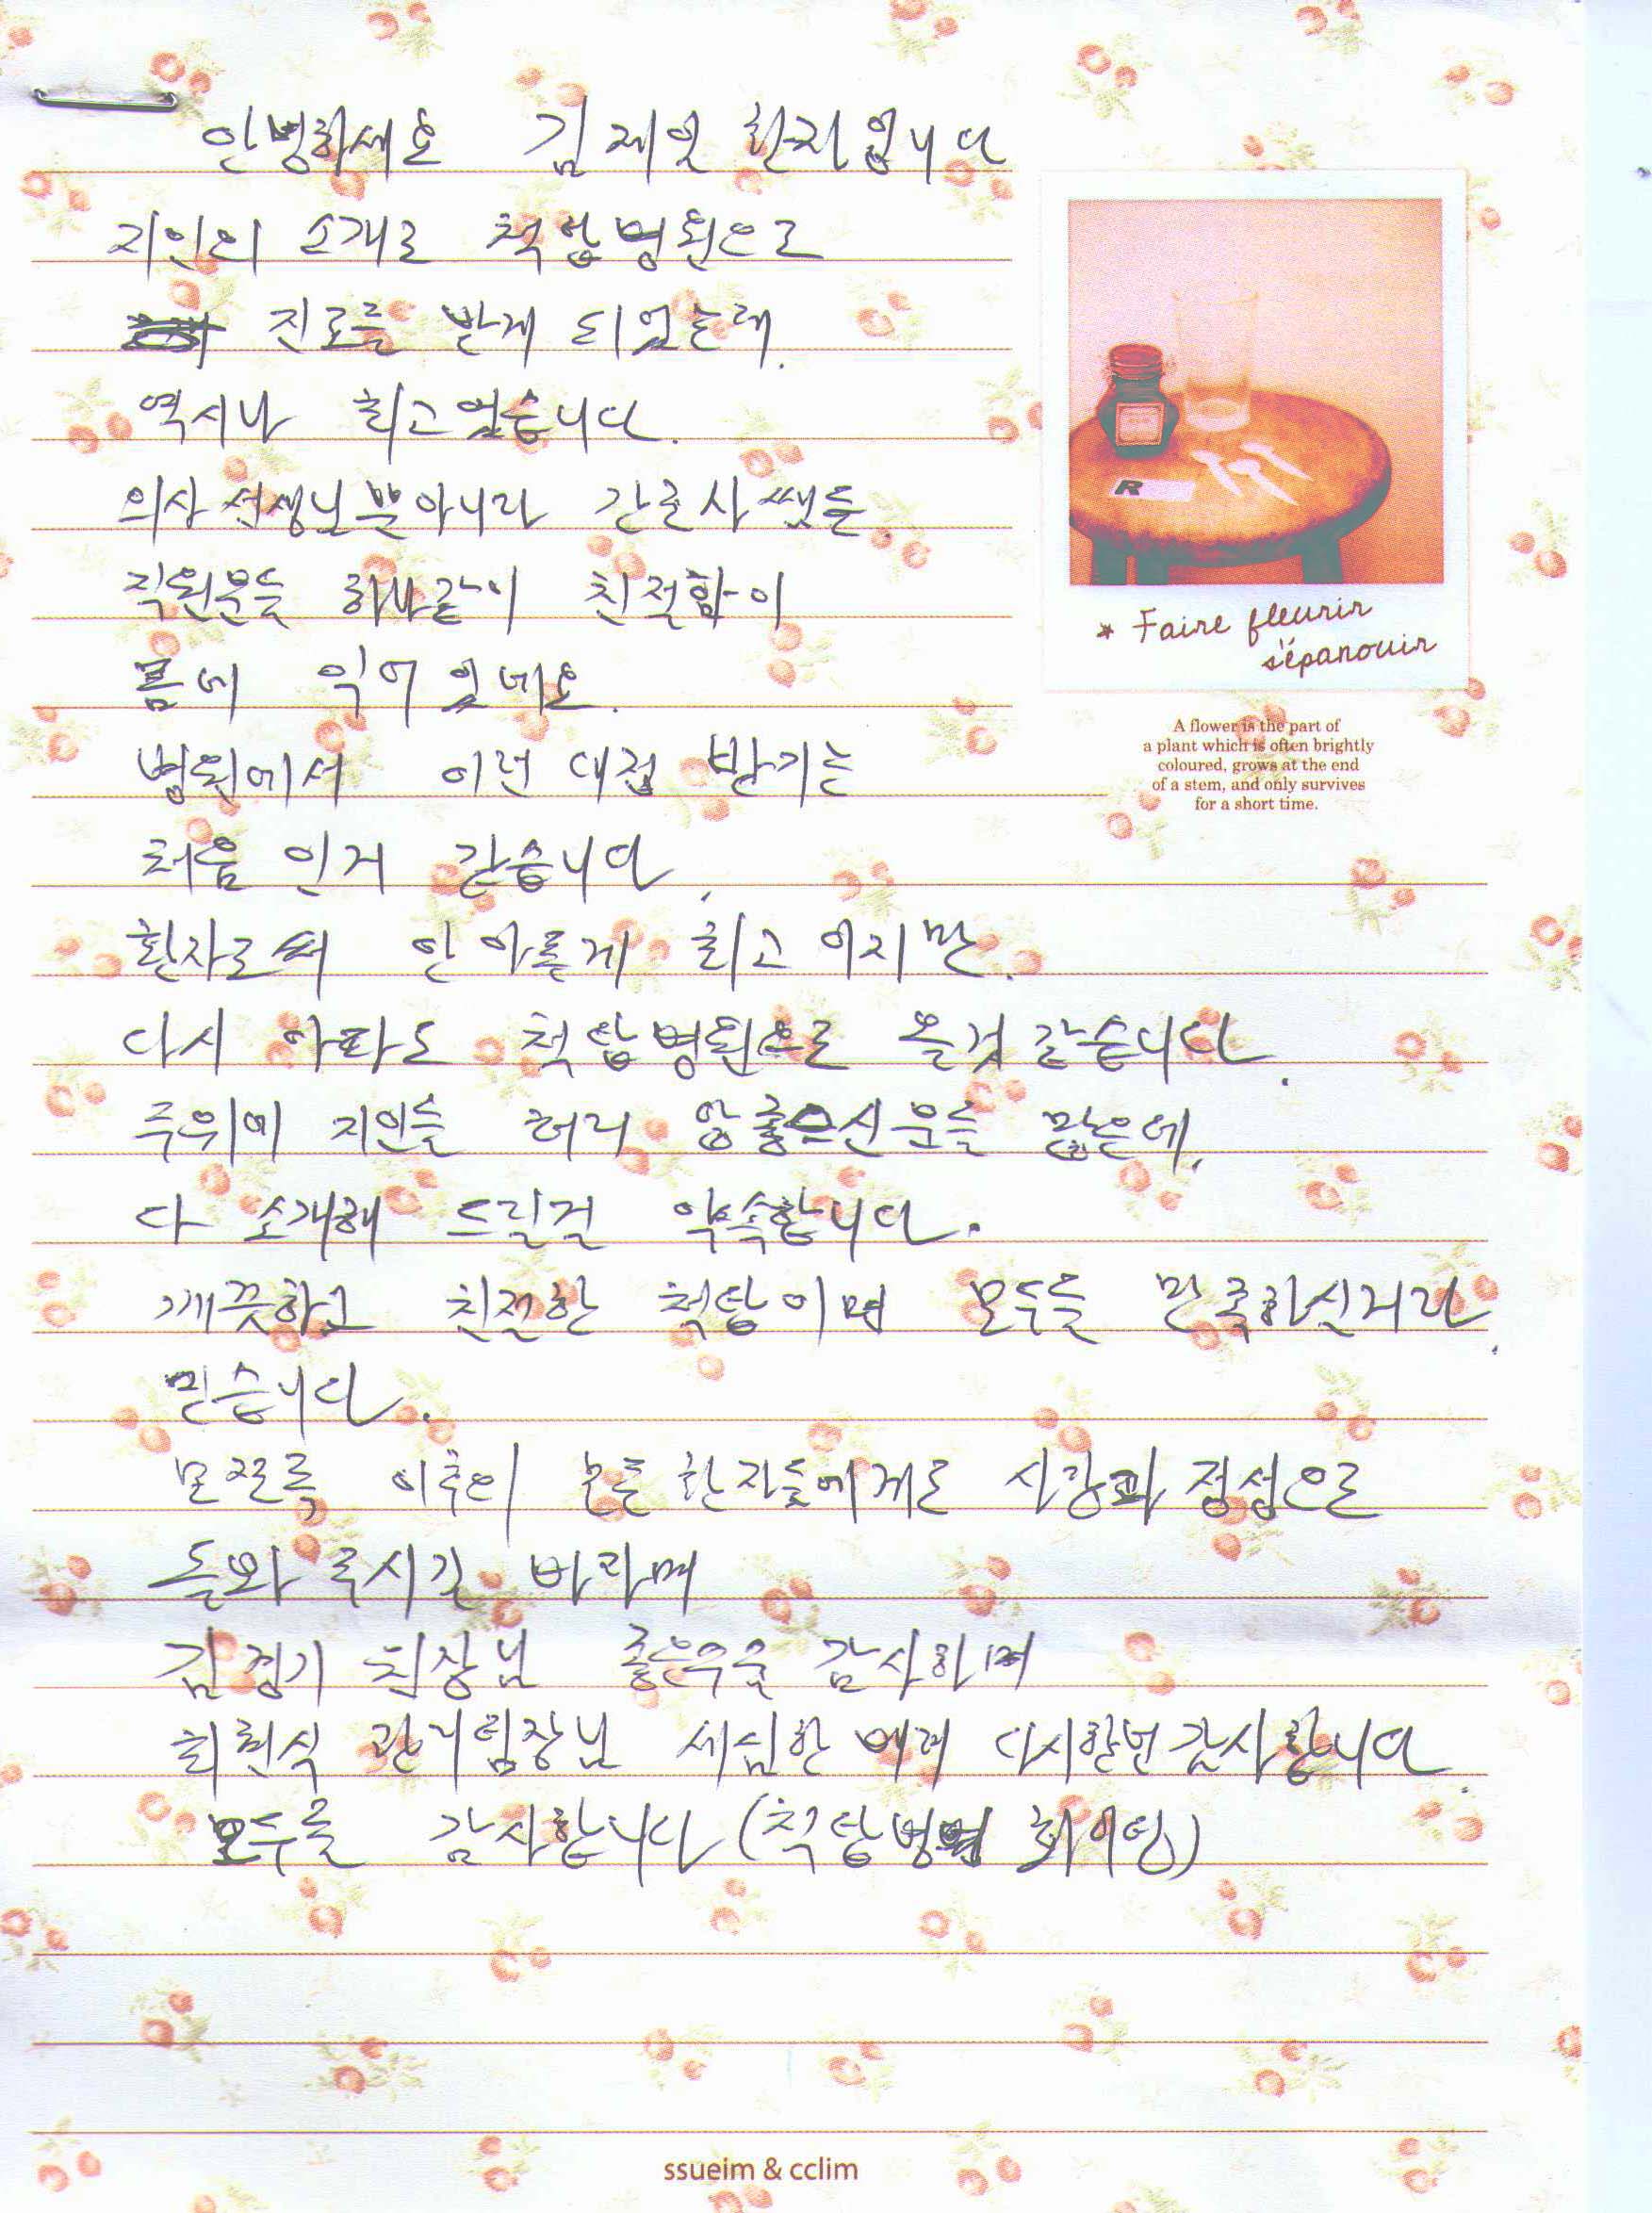 안녕하세요 김제일 환자입니다
지인의 소개로 척탑병원으로
진료를 받게 되었는데.
역시나 최고였습니다.
의사선생님뿐아니라 간호사쌤들.
직원분들 하나같이 친절함이
몸에 익어 있네요.
병원에서 이런 대접 받기는
처음 인거 같습니다.
환자로써 안아픈게 최고 이지만.
다시 아파도 척탑병원으로 올것 같습니다.
주위에 지인들 허리 안좋으신분들 많은데.
다 소개해 드릴걸 약속합니다.
깨끗하고 친절한 척탑이면 모두들 만족하실거라.
믿습니다.
모쪼록 이후에 모든환자들에게로 사랑과 정성으로
돌봐 주시길 바라며
김정기 원장님 좋은수술 감사하며
최현식 관리팀장님 세심한 배려 다시한번 감사합니다.
모두들 감사합니다 (척탑병원 화이팅)
* Faire fleurir
s'épanouir
A flower is the part of
a plant which is often brightly
coloured, grows at the end
of a stem, and only survives
for a short time.
R
ssueim & cclim